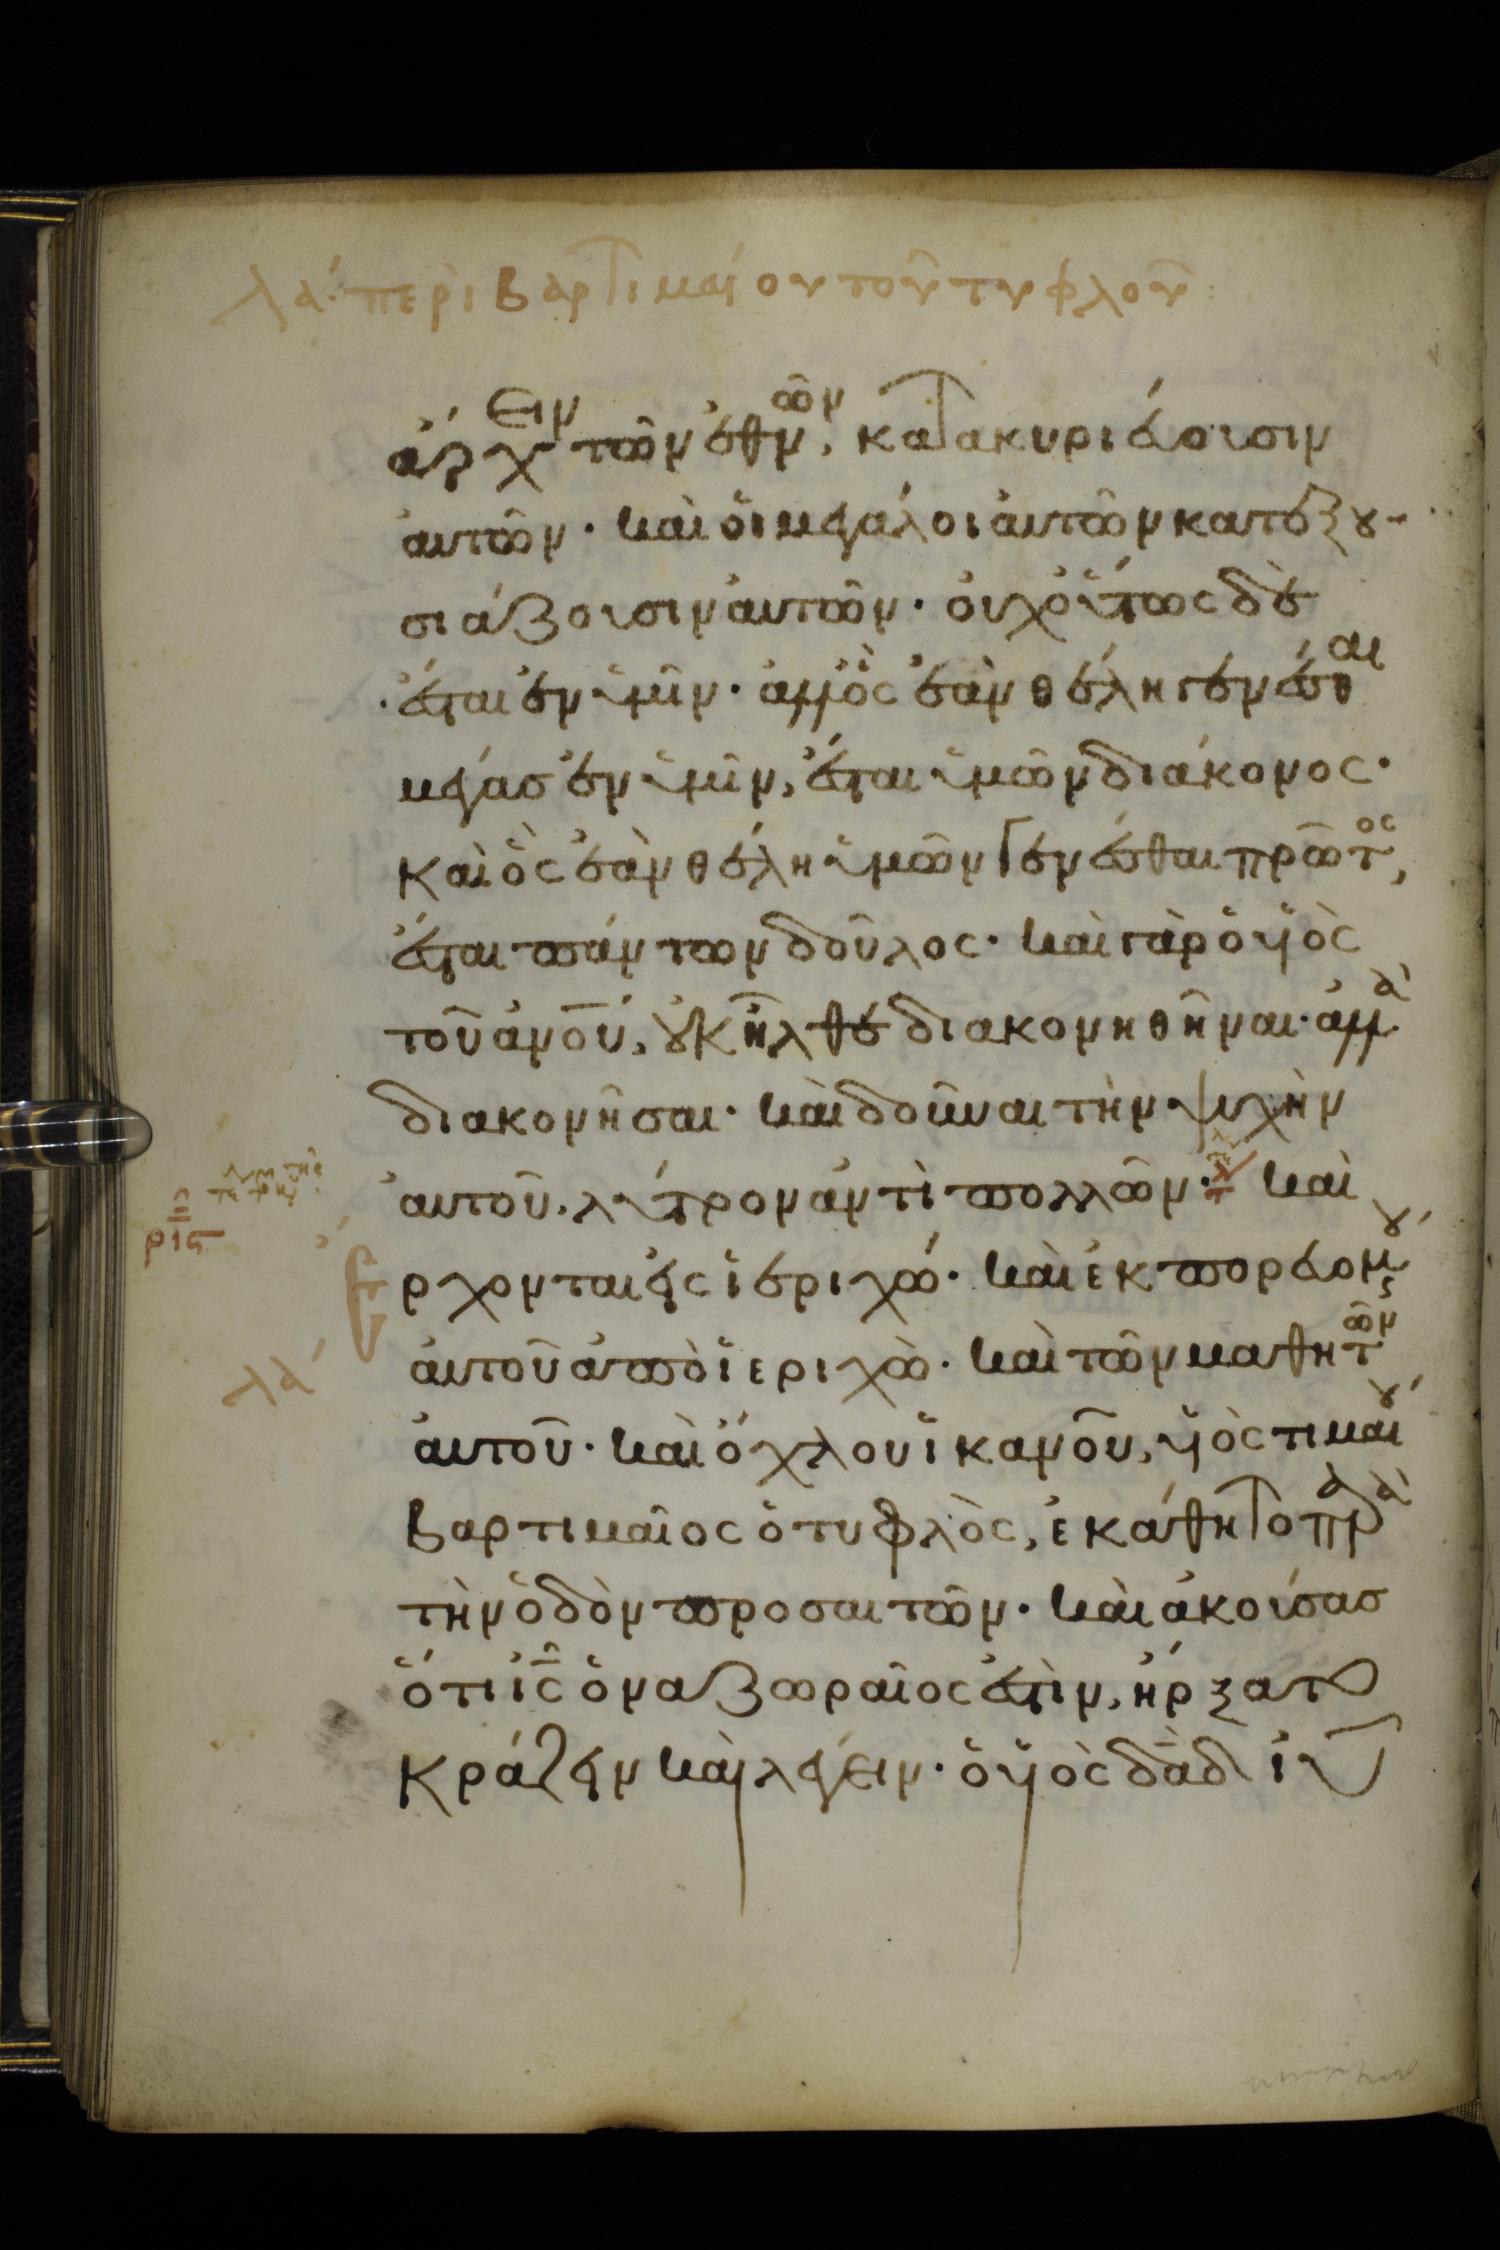 λα΄ περὶ βαρτιμαίου τοῦ τυφλοῦ:
ἄρχειν τῶν ἐθνῶν, κατακυριεύουσιν
αὐτῶν· καὶ οἱ μεγάλοι αὐτῶν κατεξου-
σιάζουσιν αὐτῶν· οὐχ οὕτως δὲ
ἔσται ἐν ὑμῖν· ἀλλ' ὃς ἐὰν θέλη γενέσθαι
μέγας ἐν ὑμῖν, ἔσται ὑμῶν διάκονος·
καὶ ὃς ἐὰν θέλη ὑμῶν γενέσθαι πρῶτος,
ἔσται πάντων δοῦλος· καὶ γὰρ ὁ υἱὸς
τοῦ ἀνου, οὐκ ἦλθε διακονηθῆναι· ἀλλὰ
διακονῆσαι· καὶ δοῦναι τὴν ψυχὴν
αὐτοῦ, λύτρον ἀντὶ πολλῶν· καὶ
ριϛ
ἔρχονται εἰς ἱεριχώ· καὶ ἐκπορευομένου
λα΄ αὐτοῦ ἀπὸ ἱεριχὼ· καὶ τῶν μαθητῶν
αὐτοῦ· καὶ ὄχλου ἱκανοῦ, υἱὸς τιμαίου
βαρτιμαῖος ὁ τυφλὸς, ἐκάθητο παρὰ
τὴν ὁδὸν προσαιτῶν· καὶ ἀκούσας
ὅτι ις ὁ ναζωραῖος ἐστὶν, ἤρξατο
κράζειν καὶ λέγειν· ὁ υἱὸς δαδ ιυ